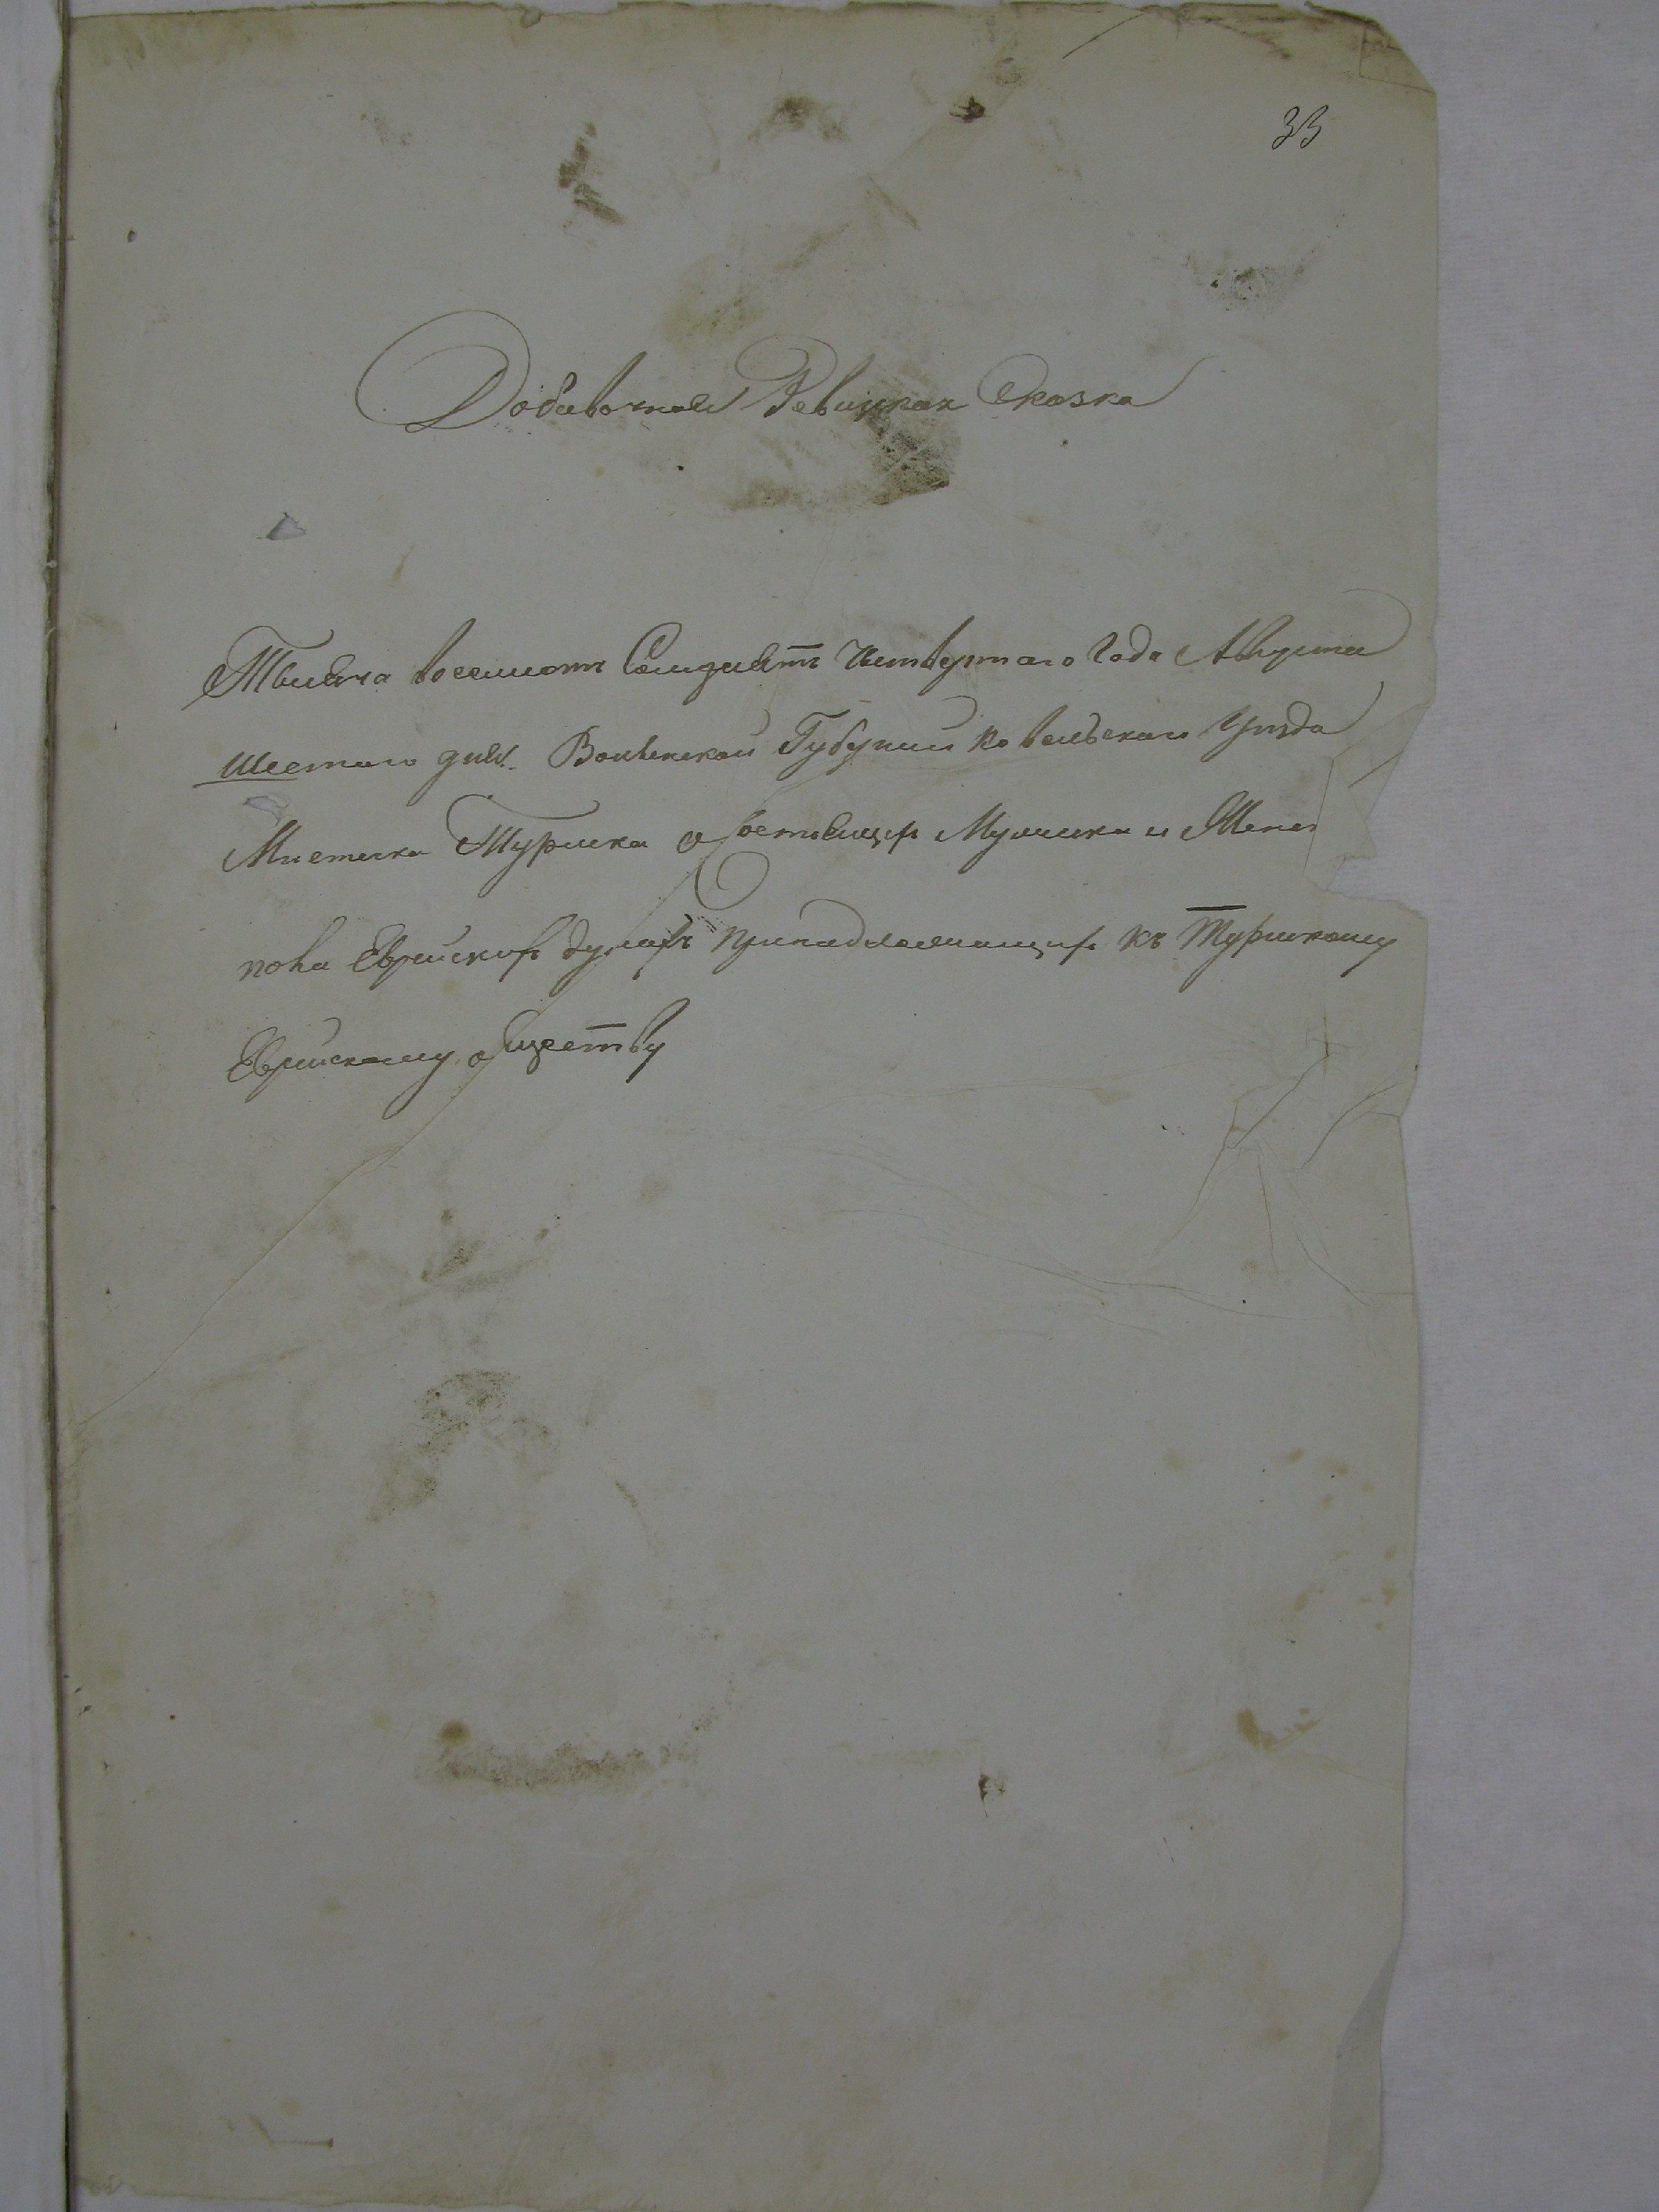 33
Добавочная Ревизкая Сказка
Тысяча восемсотъ Семдесятъ Четвертаго Года Августа
шестаго дня. Волынской Губерніи Ковельскаго Уезда
Местечка Турійска о состоящихъ Мужиска и Женс
пола Еврейскихъ душахъ принадлежащихъ къ Турійскому
Еврейскому обществу